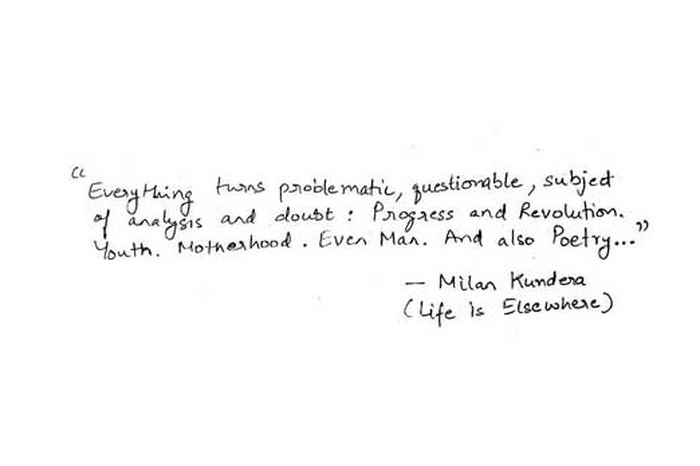 “Everything turns problematic, questionable, subject
of analysis and doubt: Progress and Revolution.
Youth. Motherhood. Even Man. And also Poetry...”
— Milan Kundera
(Life is Elsewhere)